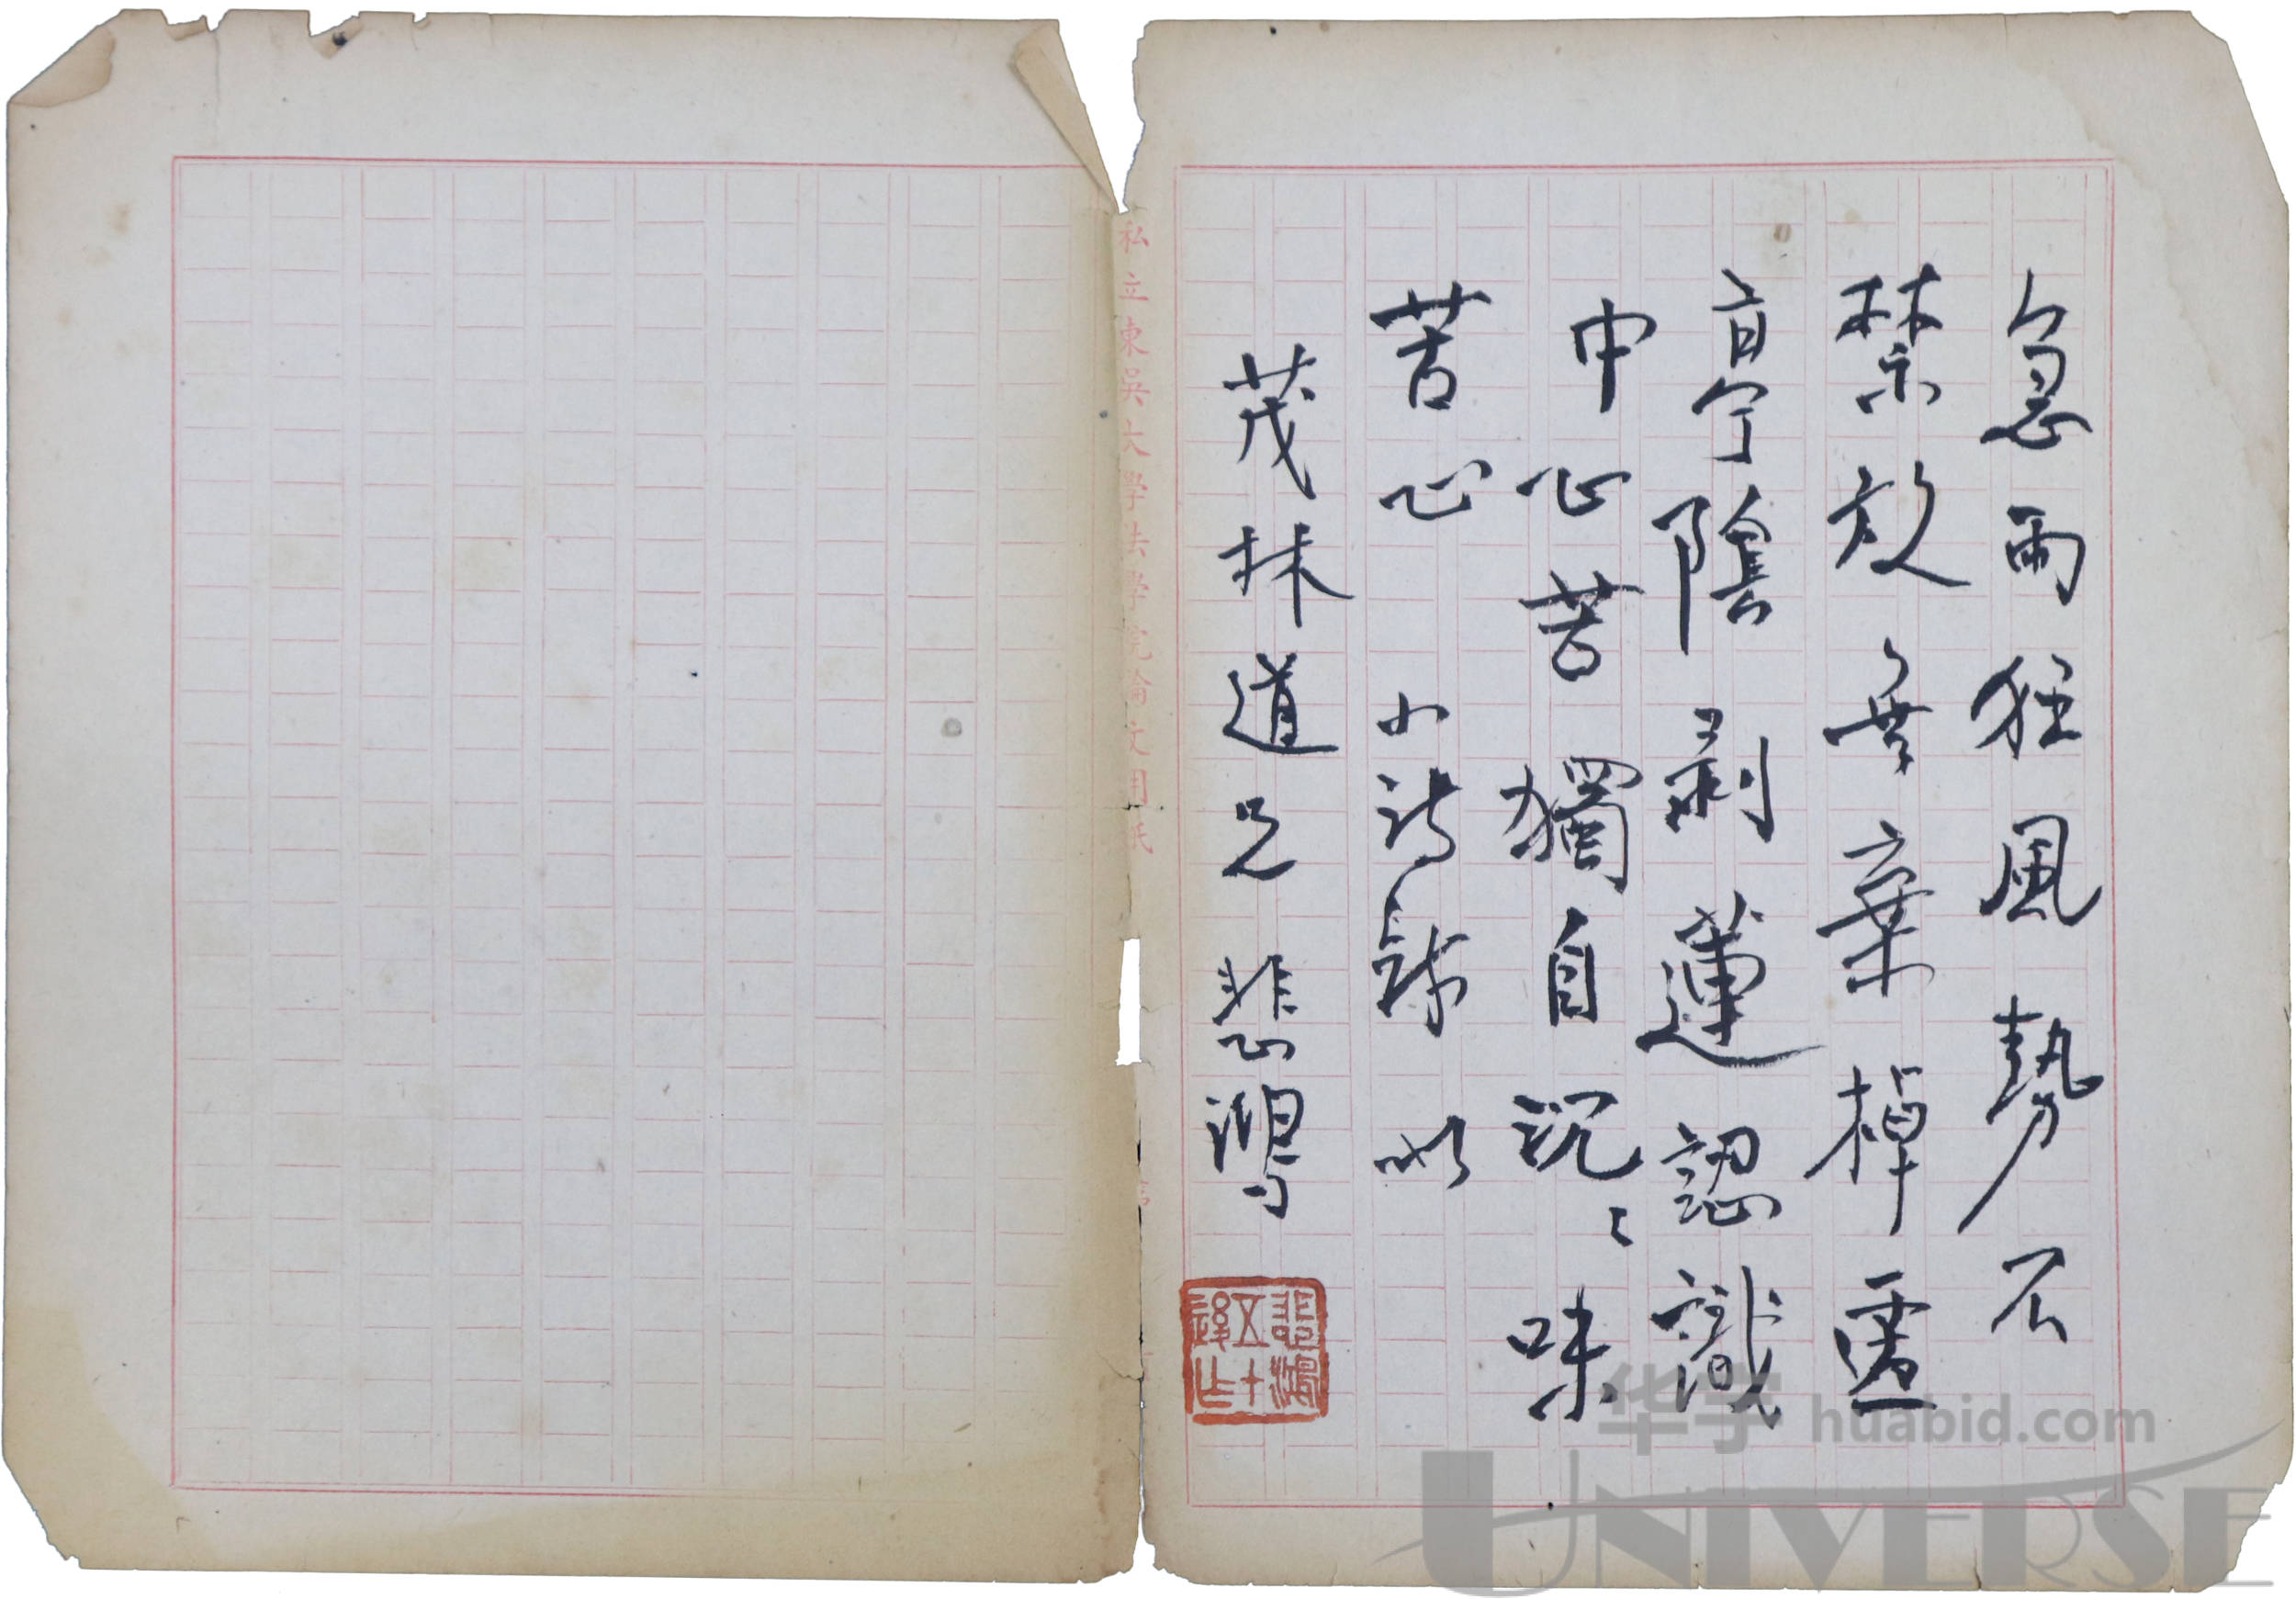 急雨狂風勢不
禁放舟棄棹遷
亭陰剥蓮認識
中心苦獨自沉〻味
苦心 小詩錄似
茂林道兄 悲鴻
悲鴻五十後乍
私立東吳大學法學院論文用紙
华宇 huabid.com
UNIVERSE